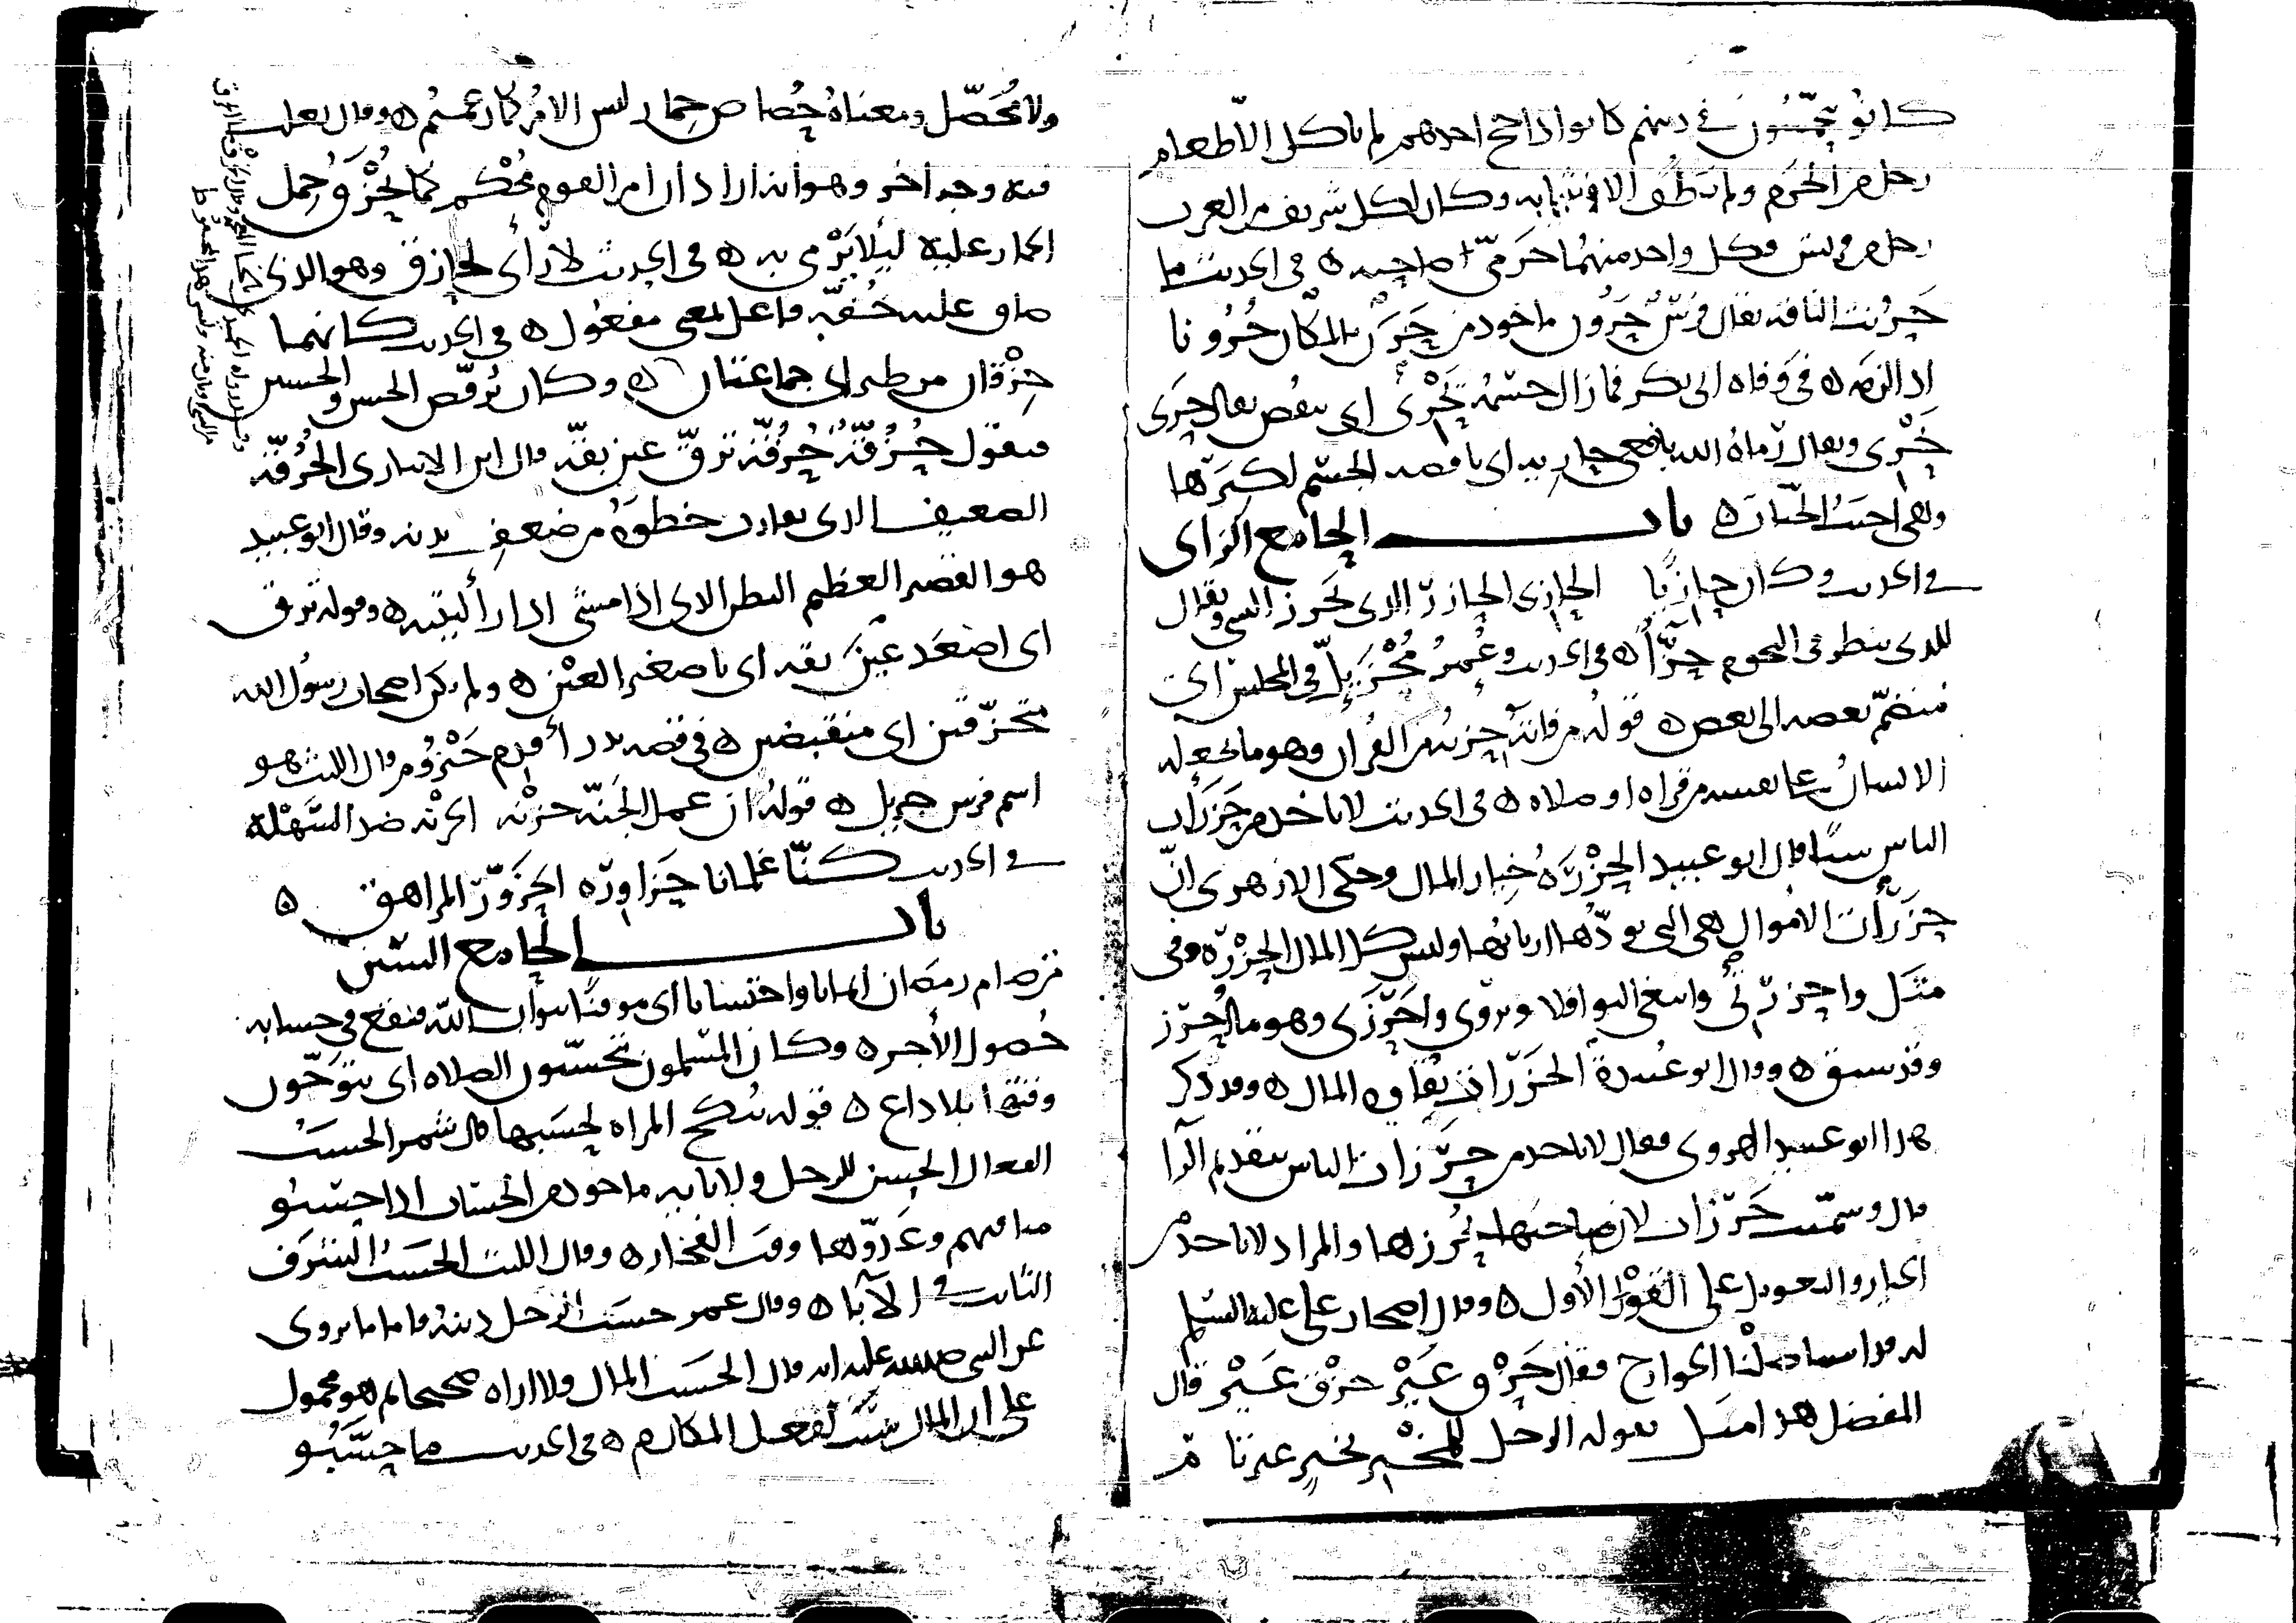 كانوا يتحمسون في دينهم كانوا اذا حج احدهم لم ياكل الا طعام
رجل من الحرم ولم يطف الا في ثيابه وكان لكل شريف من العرب
رجل من قريش وكل واحد منهما حرمي صاحبه ه في الحديث ما
حرنت الناقة يقال فرس حرون ماخوذ من حرن بالمكان حرونا
اذا لزمه ه في وفاة ابي بكر فما زال جسمه يحري اي ينقص يقال حرى
يحري ويقال رماه الله بافعى حارية اي ناقصة الجسم لكبرها
وهي اخبث الحيات ه باب الحا مع الزاي
في الحديث وكان حازيا الحازي الحازر الذي يحرز الشي ويقال
للذي ينظر في النجوم حزاء ه في الحديث وعمر محزئل في المجلس اي
منضم بعضه الى بعض ه قوله من فاته حزبه من القران وهو ما يجعله
الانسان على نفسه من قراه او صلاه ه في الحديث لا تاخذ من حزرات
الناس شيئا قال ابو عبيد الحزرة خيار المال وحكى الازهري ان
حزرات الاموال هي التي يودها اربابها وليس كل المال الحزرة وفي
مثل واحرزتي وابتغي النوافلا ويروى واحرزي وهو ما احرز
وقد سبق ه وقال ابو عبيدة الحزرات نقاوة المال ه وقد ذكر
هذا ابو عبيد الهروي فقال لا تاخذ من حرزات الناس بتقديم الرا
قال وسميت حرزات لان صاحبها يحرزها والمراد لا تاخذ من
الخيار والتعويل على القول الاول ه وقال اصحاب علي عليه السلم
له قد استاصلنا الخوارج فقال حزق عير حزق عير قال
المفضل هذا مثل يقوله الرجل للمخبر بخبر غير تام
ولا محصل ومعناه حصاص حمار ليس الامر كما زعمتم ه وقال ثعلب
فيه وجه اخر وهو انه اراد ان امر القوم محكم كما يحزق حمل
الحمار عليه ليلا يرمي به ه في الحديث لا راي لحازق وهو الذي
ضاق عليه خفه فاعل بمعنى مفعول ه في الحديث كانهما
حزقان من طير اي جماعتان ه وكان يرقص الحسن والحسين
فيقول حزقة حزقة ترق عين بقة قال ابن الانباري الحزقة
الضعيف الذي يقارب خطوه من ضعف بدنه وقال ابو عبيد
هو القصير العظيم البطن الذي اذا مشى ادار اليته ه وقوله ترق
اي اصعد عين بقة اي يا صغير العين ه ولم يكن اصحاب رسول الله
متحزقين اي منقبضين ه في قصه بدر اقدم حيزوم قال الليث هو
اسم فرس جبريل ه قوله ان عمل الجنة حزنة الحزنة ضد السهلة
في الحديث كنا غلمانا حزاورة الحزور المراهق ه
باب الحا مع السين
من صام رمضان ايمانا واحتسابا اي موقنا بثواب الله فتقع في حسابه
حصول الاجر ه وكان المسلمون يتحسبون الصلاه اي يتوخون
وقتها بلا داع ه قوله تنكح المراه لحسبها قال شمر الحسب
الفعال الحسن للرجل ولابايه ماخوذ من الحساب اذا حسبوا
مناقبهم وعدوها وقت الفخار ه وقال الليث الحسب الشرف
الثابت في الآبا ه وقال عمر حسب الرجل دينه فاما ما يروى
عن النبي صلى الله عليه انه قال الحسب المال ولا اراه صحيحا ثم هو محمول
على ان المال سبب لفعل المكارم ه في الحديث ما حسبوا